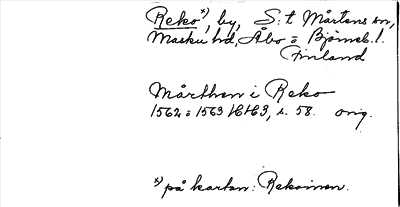 Reko x), by, S:t Mårtens sn,
Masku hd, Åbo o Björneb. l.
Finland
Mårthen i Reko
1562 o 1563 HH3, s. 58. orig.
x) på kartan: Rekoinen.